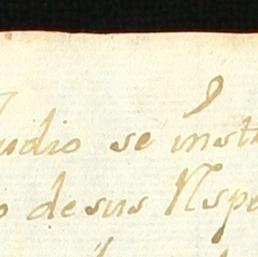 udio se inst
o de sus Nsp